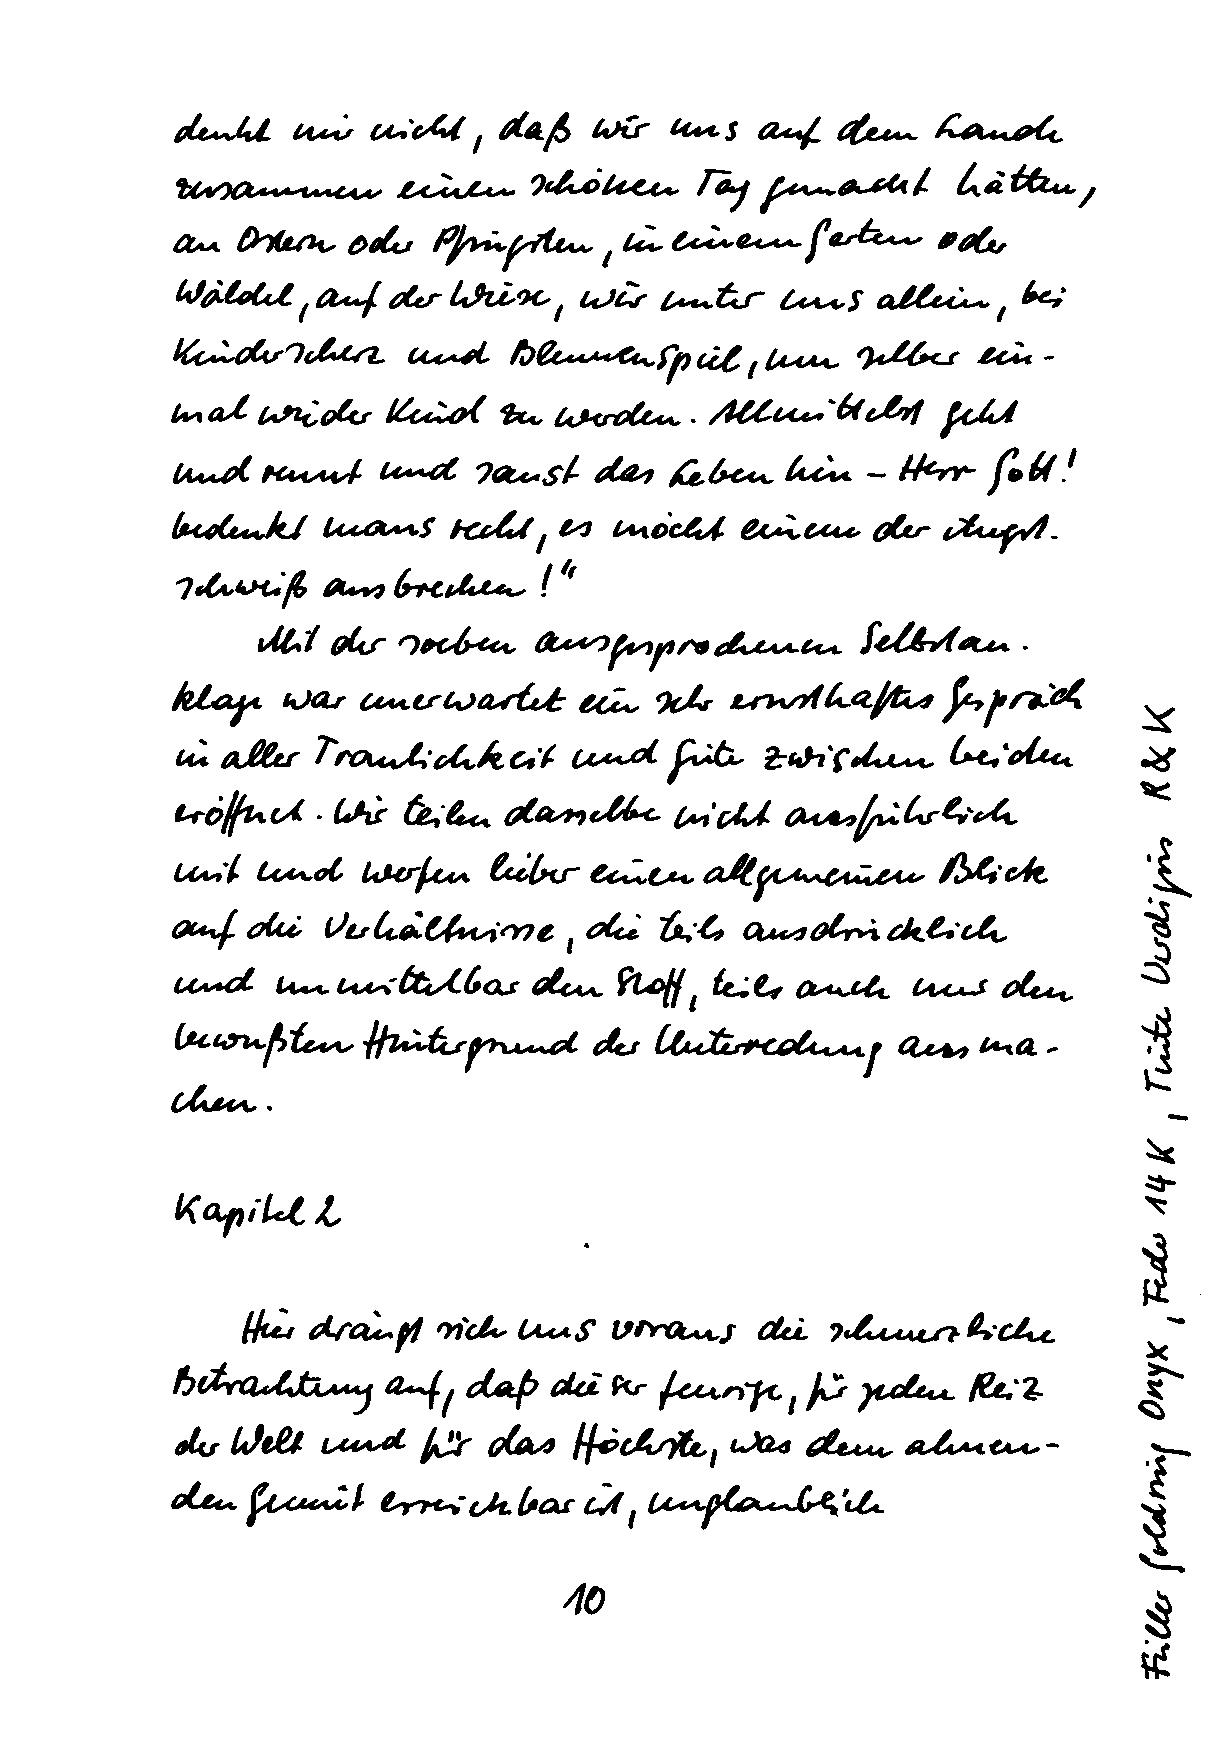 denkt mir nicht, daß wir uns auf dem Lande
zusammen einen schönen Tag gemacht hätten,
an Ostern oder Pfingsten, in einem Garten oder
Wäldel, auf der Wiese, wir unter uns allein, bei
Kinderscherz und Blumenspiel, um selber ein-
mal wieder Kind zu werden. Allmittelst geht
und rennt und saust das Leben hin – Herr Gott!
bedenkt mans recht, es möcht einem der Angst-
schweiß ausbrechen!“
Mit der soeben ausgesprochenen Selbstan-
klage war unerwartet ein sehr ernsthaftes Gespräch
in aller Traulichkeit und Güte zwischen beiden
eröffnet. Wir teilen dasselbe nicht ausführlich
mit und werfen lieber einen allgemeinen Blick
auf die Verhältnisse, die teils ausdrücklich
und unmittelbar den Stoff, teils auch nur den
bewußten Hintergrund der Unterredung ausma-
chen.
Kapitel 2
Hier drängt sich uns voraus die schmerzliche
Betrachtung auf, daß dieser feurige, für jeden Reiz
der Welt und für das Höchste, was dem ahnen-
den Gemüt erreichbar ist, unglaublich
10
Füller Goldring Onyx, Feder 14K, Tinte Verdigris R&K